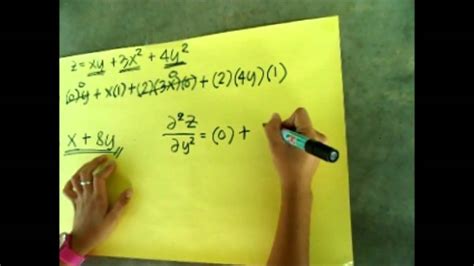 z = xy + 3x² + 4y²
(0)y + x(1) + (2)(3x)(0) + (2)(4y)(1)
x + 8y
∂²z/∂y² = (0) +